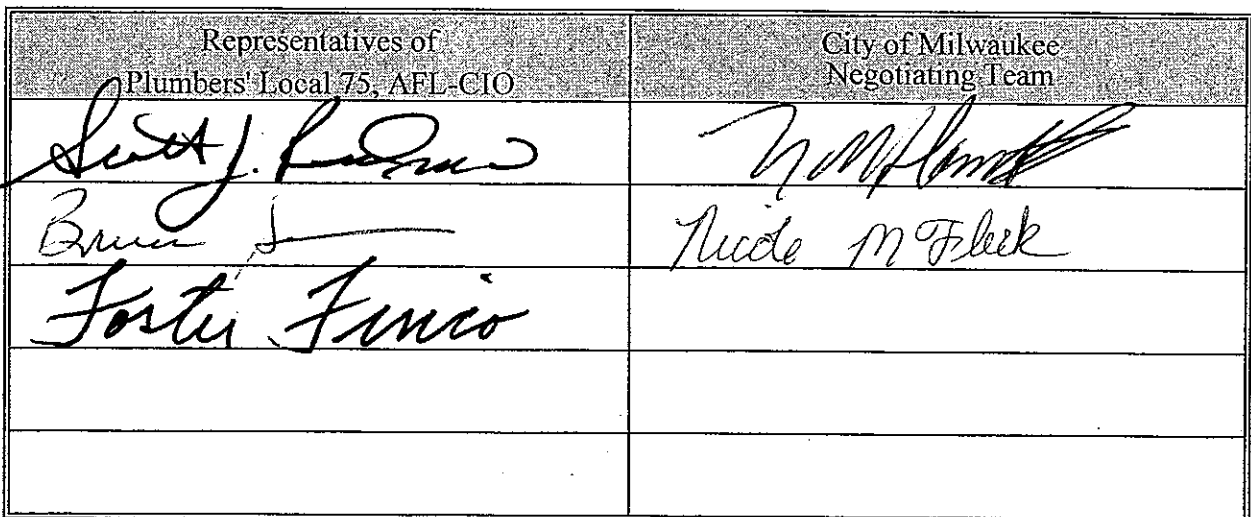 Representatives of
Plumbers' Local 75, AFL-CIO
City of Milwaukee
Negotiating Team
Scott J.
Bruce
Nicole M Fleck
Foster Finco